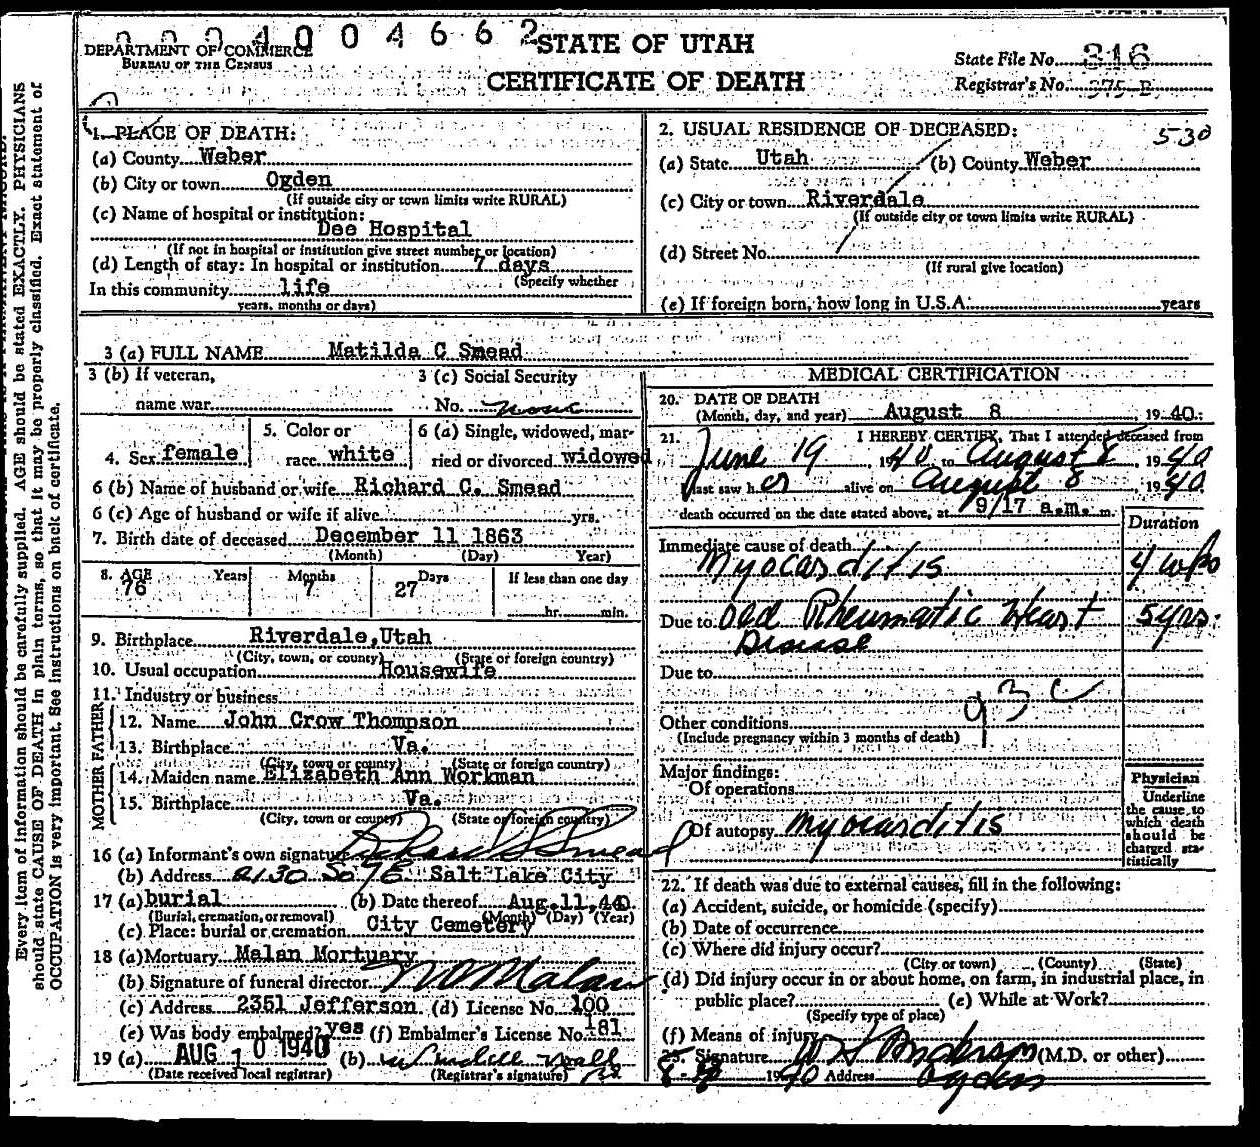 0004004662
DEPARTMENT OF COMMERCE
BUREAU OF THE CENSUS
STATE OF UTAH
CERTIFICATE OF DEATH
State File No. 316
Registrar's No. 375-B
1. PLACE OF DEATH:
(a) County Weber
(b) City or town Ogden
(If outside city or town limits write RURAL)
(c) Name of hospital or institution:
Dee Hospital
(If not in hospital or institution give street number or location)
(d) Length of stay: In hospital or institution 7 days
(Specify whether
In this community life
years, months or days)
2. USUAL RESIDENCE OF DECEASED: 530
(a) State Utah (b) County Weber
(c) City or town Riverdale
(If outside city or town limits write RURAL)
(d) Street No.
(If rural give location)
(e) If foreign born, how long in U.S.A. years
3 (a) FULL NAME Matilda C Smead
3 (b) If veteran, 3 (c) Social Security
name war No. none
4. Sex female 5. Color or race white 6 (a) Single, widowed, married or divorced widowed
6 (b) Name of husband or wife Richard C. Smead
6 (c) Age of husband or wife if alive yrs.
7. Birth date of deceased December 11 1863
(Month) (Day) Year)
8. AGE Years Months Days If less than one day
76 7 27 hr. min.
9. Birthplace Riverdale, Utah
(City, town, or county) (State or foreign country)
10. Usual occupation Housewife
11. Industry or business
FATHER
12. Name John Crow Thompson
13. Birthplace Va.
(City, town or county) (State or foreign country)
MOTHER
14. Maiden name Elizabeth Ann Workman
15. Birthplace Va.
(City, town or county) (State or foreign country)
16 (a) Informant's own signature Richard S Smead
(b) Address 2130 So 9 E Salt Lake City
17 (a) burial (b) Date thereof Aug. 11, 40.
(Burial, cremation, or removal) (Month) (Day) (Year)
(c) Place: burial or cremation City Cemetery
18 (a) Mortuary Malan Mortuary
(b) Signature of funeral director Malan
(c) Address 2351 Jefferson (d) License No. 100
(e) Was body embalmed? yes (f) Embalmer's License No. 181
19 (a) AUG 10 1940 (b)
(Date received local registrar) (Registrar's signature)
MEDICAL CERTIFICATION
20. DATE OF DEATH
(Month, day, and year) August 8, 1940.
21. I HEREBY CERTIFY, That I attended deceased from
June 19, 1940 to August 8, 1940
last saw her alive on August 8, 1940
death occurred on the date stated above, at 9/17 a.m. m.
Duration
Immediate cause of death
Myocarditis 4 wks
Due to Old Rheumatic Heart 5 yrs.
Disease
Due to
93c
Other conditions
(Include pregnancy within 3 months of death)
Major findings:
Of operations
Of autopsy Myocarditis
Physician
Underline
the cause to
which death
should be
charged sta-
tistically
22. If death was due to external causes, fill in the following:
(a) Accident, suicide, or homicide (specify)
(b) Date of occurrence
(c) Where did injury occur?
(City or town) (County) (State)
(d) Did injury occur in or about home, on farm, in industrial place, in
public place? (e) While at Work?
(Specify type of place)
(f) Means of injury
23. Signature Anderson (M.D. or other)
1940 Address Ogden
Every item of information should be carefully supplied. AGE should be stated EXACTLY. PHYSICIANS
should state CAUSE OF DEATH in plain terms, so that it may be properly classified. Exact statement of
OCCUPATION is very important. See instructions on back of certificate.